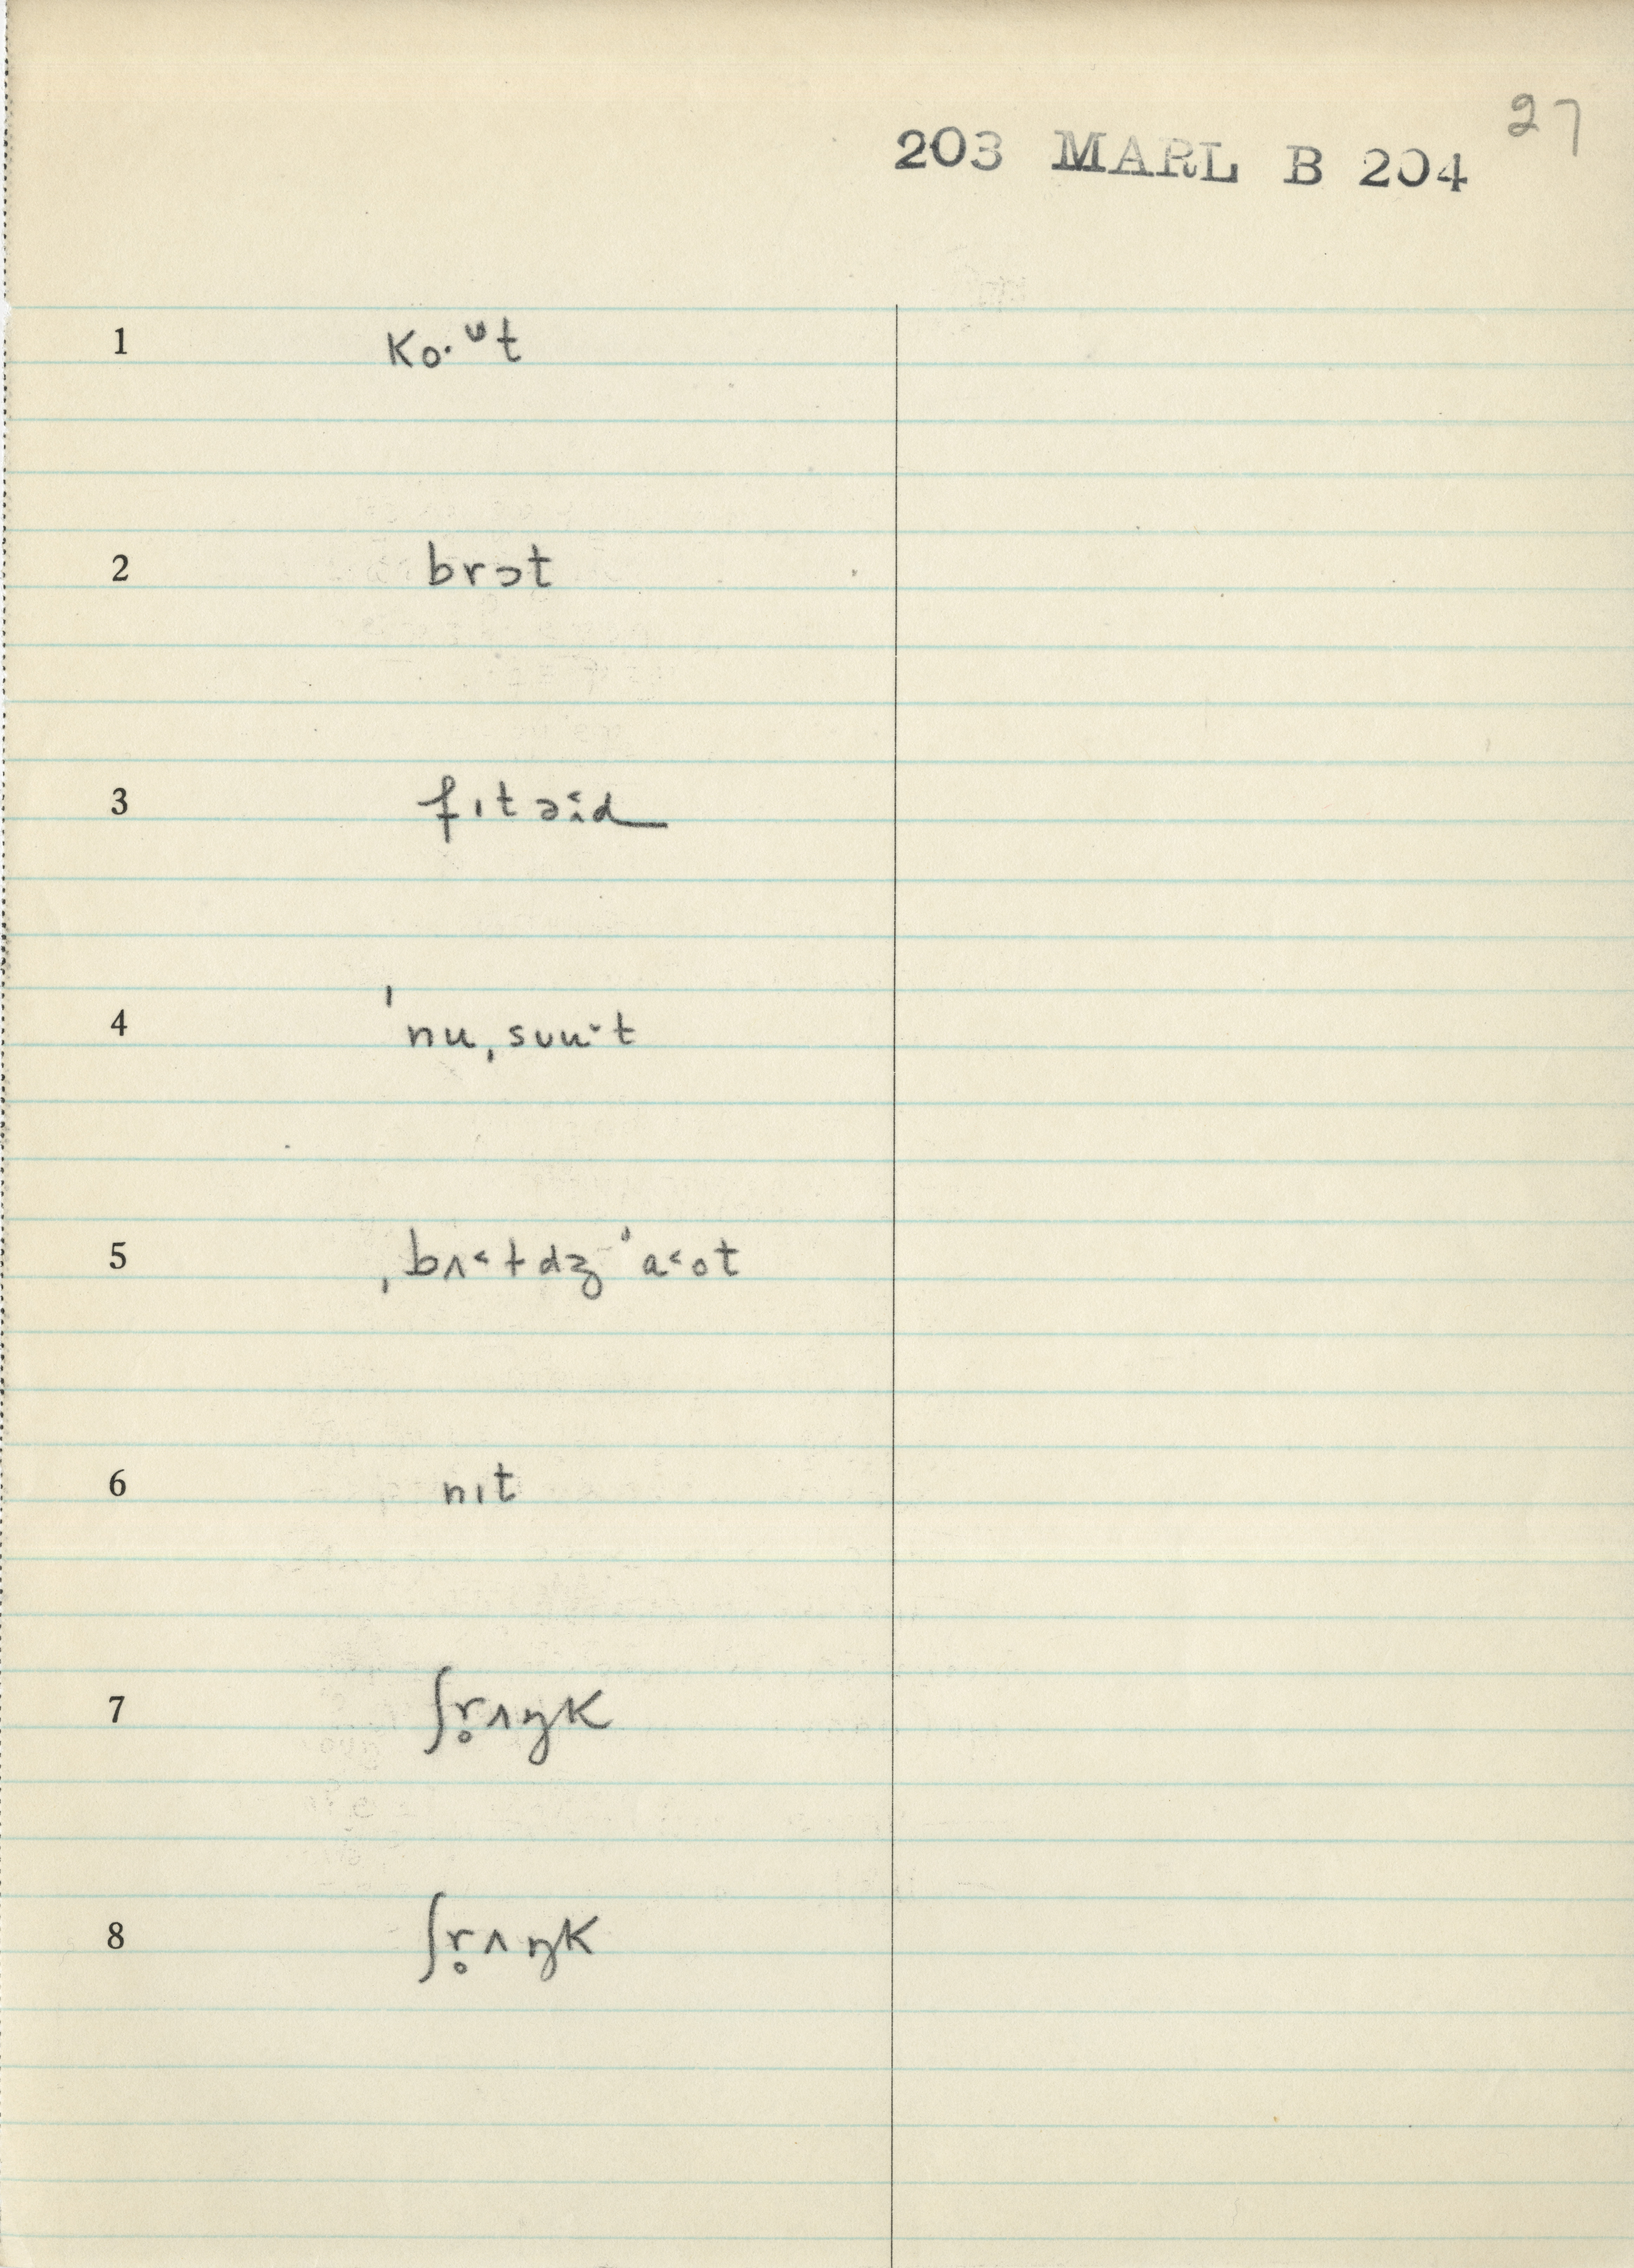 27
203 MARL B 204
1 ko·ᵘt
2 brɔt
3 fɪt əi˂d
4 ˈnuˌsuu˔t
5 ˌbʌ˂tdz ˈa˂ot
6 nɪt
7 ʃr̥ʌŋk
8 ʃr̥ʌŋk